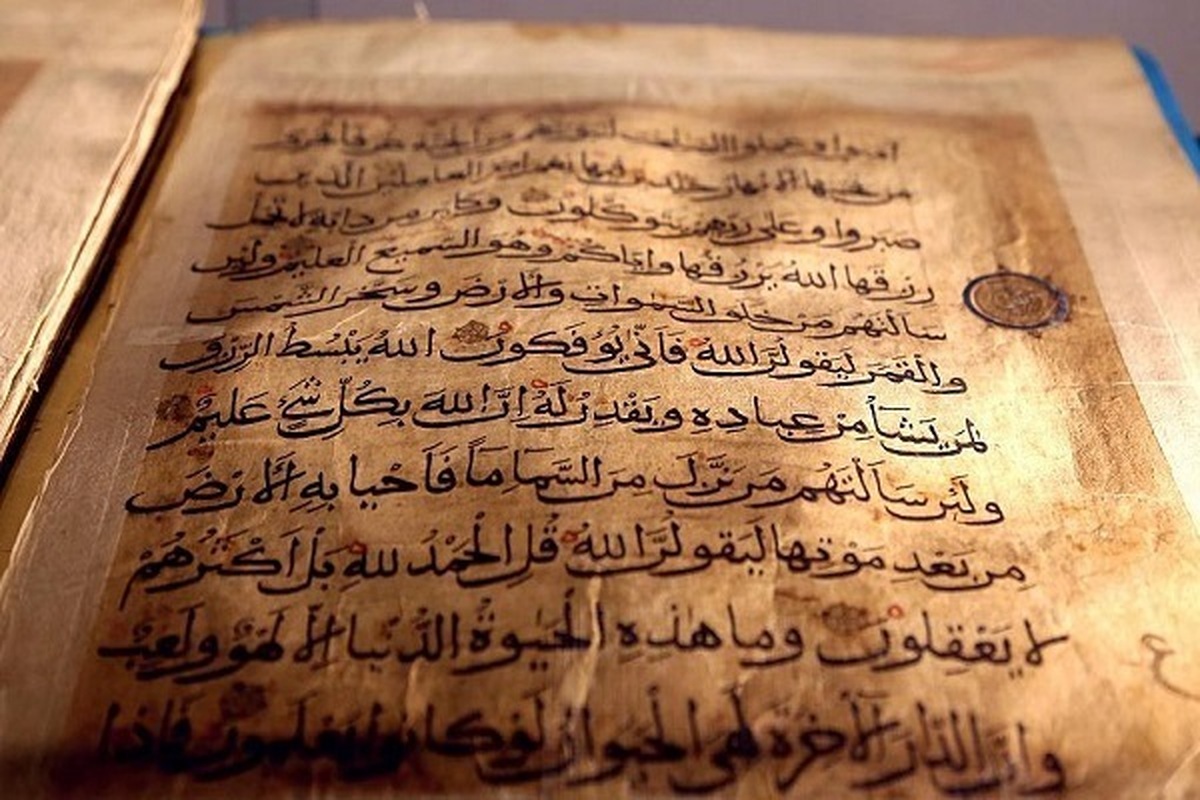 امنوا وعملوا الصلحت لنبوئنهم من الجنة غرفا تجرى
من تحتها الانهار خلدين فيها نعم اجر العاملين الذين
صبروا وعلى ربهم يتوكلون وكاين من دابة لا تحمل
رزقها الله يرزقها واياكم وهو السميع العليم ولئن
سالتهم من خلق السموات والارض وسخر الشمس
والقمر ليقولن الله فانى يؤفكون الله يبسط الرزق
لمن يشا من عباده ويقدر له ان الله بكل شى عليم
ولئن سالتهم من نزل من السما ما فاحيا به الارض
من بعد موتها ليقولن الله قل الحمد لله بل اكثرهم
لا يعقلون وما هذه الحيوة الدنيا الا لهو ولعب
ع
وان الدار الاخرة لهى الحيوان لو كانوا يعلمون فاذا